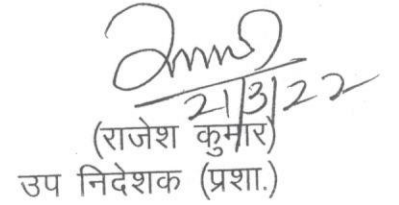 21/3/22
(राजेश कुमार)
उप निदेशक (प्रशा.)